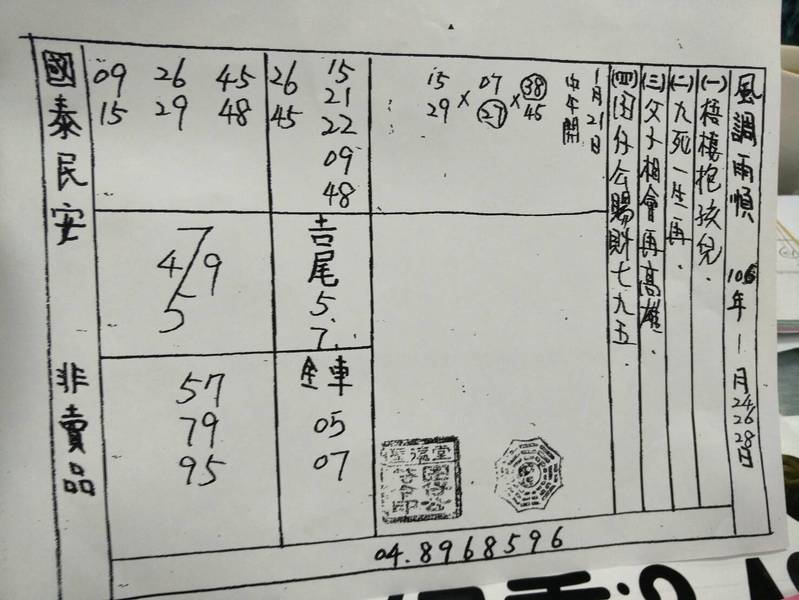 風調雨順 106年1月24 26 28日
(一)梧棲抱孩兒.
(二)九死一生再.
(三)父子相會再高雄.
(四)囝仔公賜財七九五.
1月21日
中午開
15 07 38
29 × 27 × 45
26 15
45 21
22
09
48
09 26 45
15 29 48
吉尾
5.
7.
7
4/9
5
全車
05
07
57
79
95
國泰民安 非賣品
04.8968596